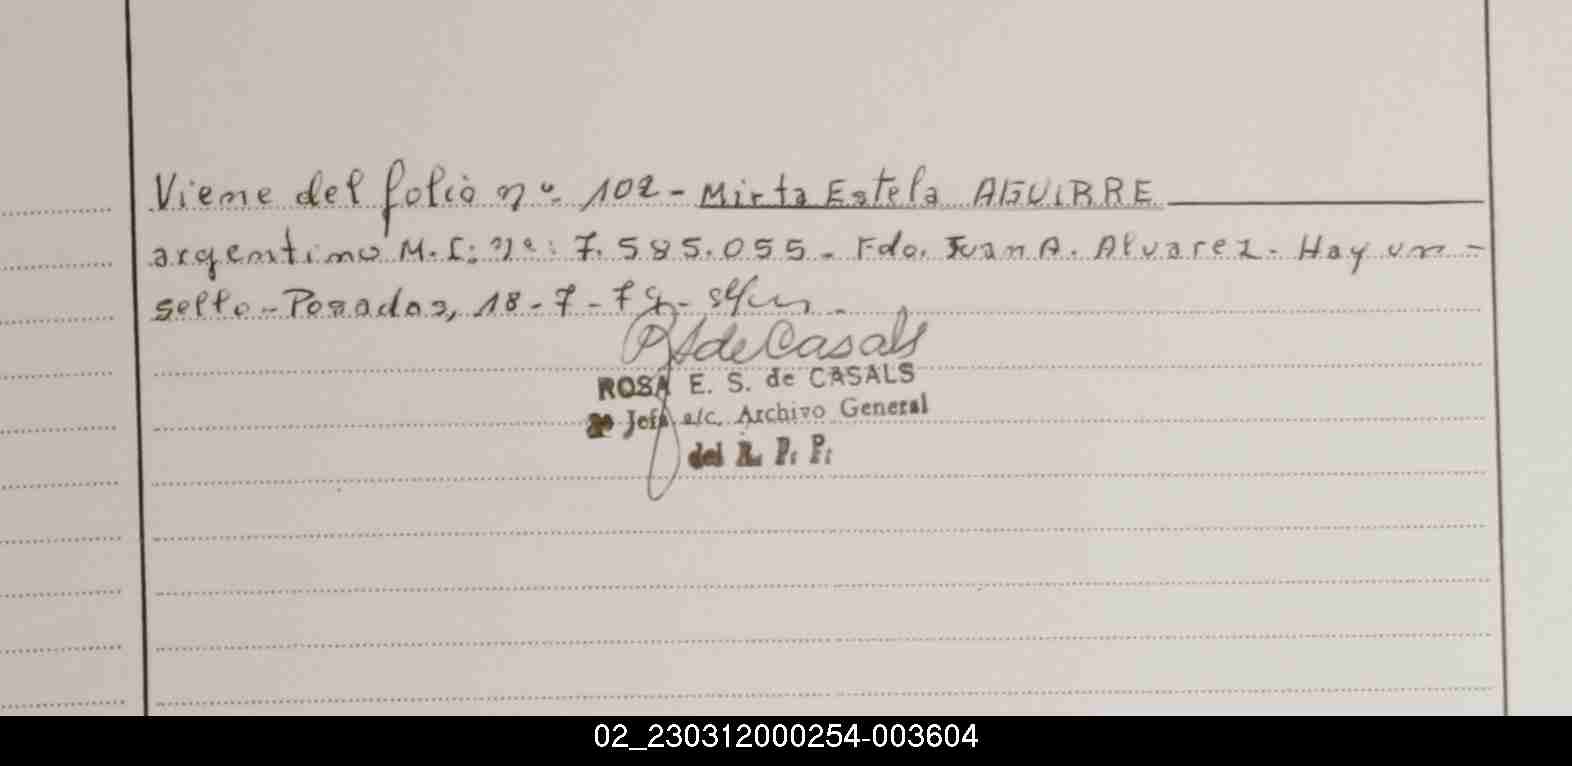 Viene del folio nº 102 - Mirta Estela AGUIRRE
argentino M.I: nº: 7.585.055 - Fdo. Juan A. Alvarez - Hay un -
sello - Posadas, 18-7-79 -
ROSA E. S. de CASALS
Jefa a/c. Archivo General
del R. P. P.
02_230312000254-003604